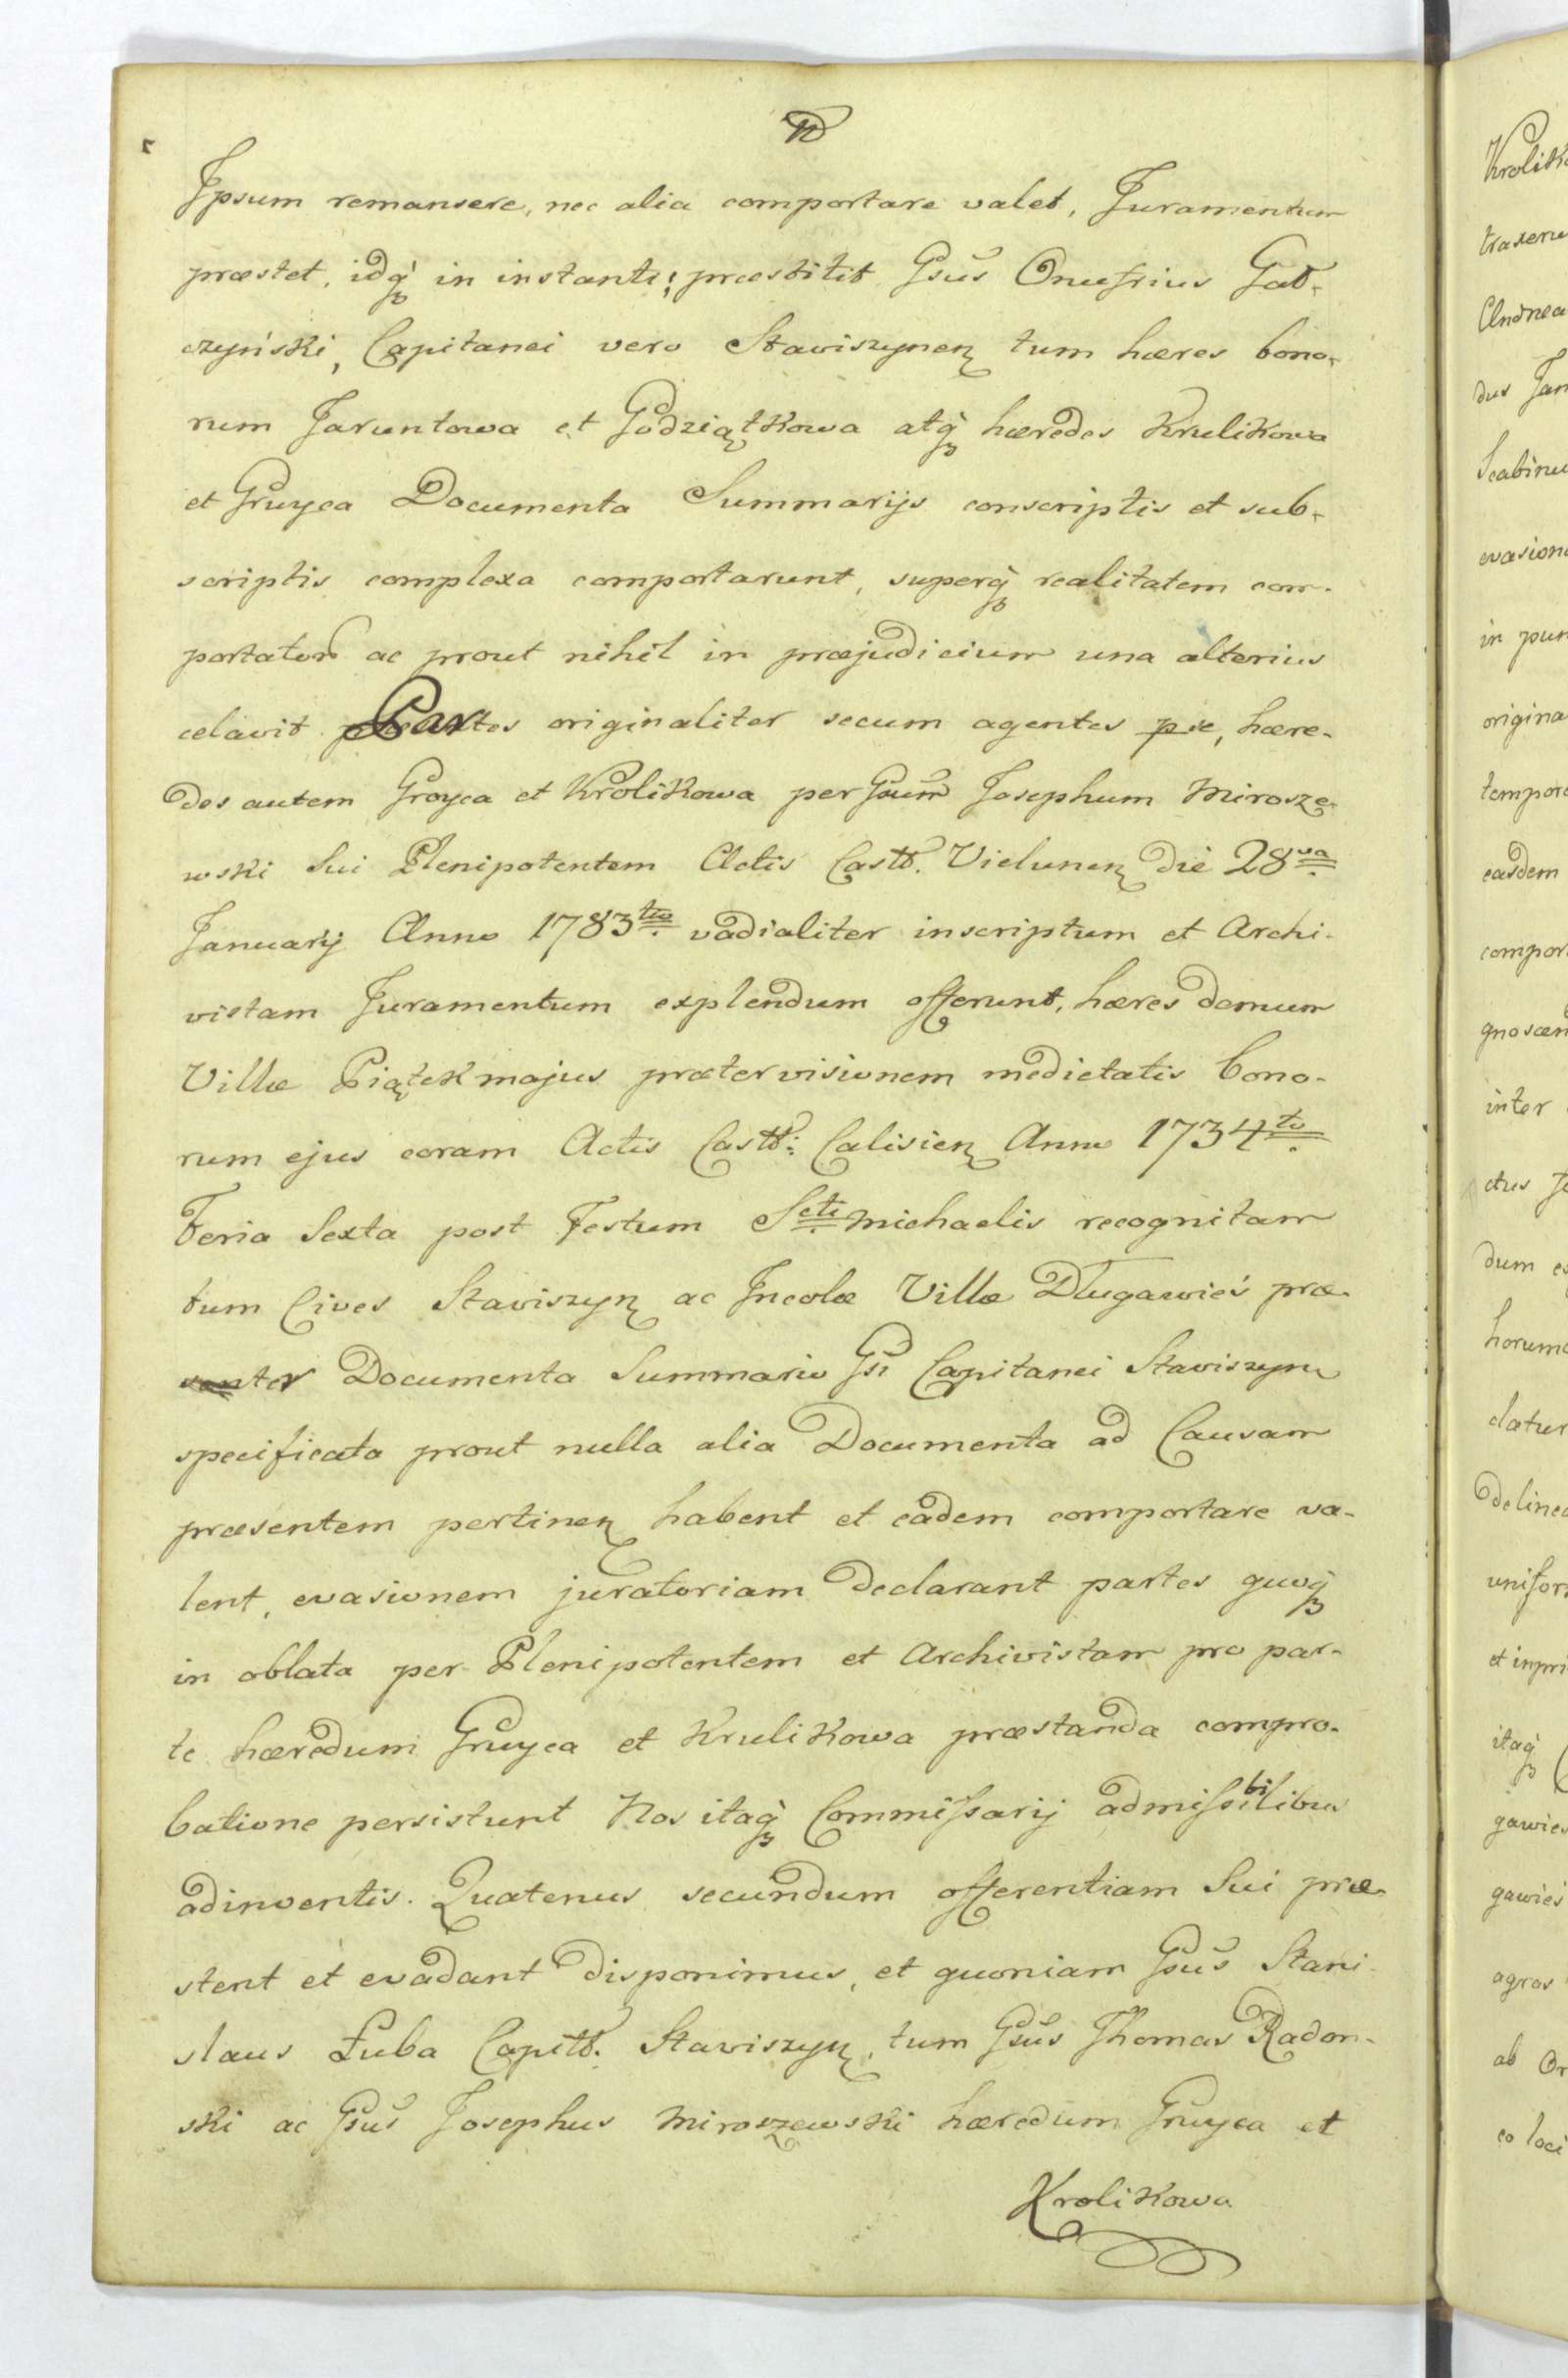 Ipsum remansere, nec alia comportare valet, Juramentum
præstet, idq̀ in instanti; præstitit Gsus Onufrius Gat-
czyński, Capitanei vero Stawiszynen tum hæres bono-
rum Jaruntowa et Godziątkowa atq̀ hæredes Krulikowa
et Gruyca Documenta Summarijs conscriptis et sub-
scriptis complexa comportarunt, superq̀ realitatem com-
portator ac prout nihil in præjudicium una alterius
celavit Partes originaliter secum agentes pse, hære-
des autem Groyca et Krolikowa per Gsum Josephum Mirosze-
wski sui Plenipotentem Actis Castr. Vielunen die 28va
January Anno 1783tio vadialiter inscriptum et Archi-
vistam Juramentum explendum offerunt, hæres demum
Villæ Piątek majus præter visionem medietatis bono-
rum ejus coram Actis Castr: Calisien Anno 1734to
Feria Sexta post Festum Scti Michaelis recognitam
tum Cives Stawiszyn ac Incolæ Villæ Długawieś præ-
ter Documenta Summario Gsi Capitanei Stawiszyn
specificata prout nulla alia Documenta ad Causam
præsentem pertinen habent et eadem comportare va-
lent, evasionem juratoriam declarant partes quoq̀
in oblata per Plenipotentem et Archivistam pro par-
te hæredum Gruyca et Krulikowa præstanda compro-
batione persistunt Nos itaq̀ Commissarij admissibilibus
adinventis. Quatenus secundum offerentiam Sui præ-
stent et evadant disponimus, et quoniam Gsus Stani-
slaus Łuba Capitt. Stawiszyn, tum Gsus Thomas Radon-
ski ac Gsus Josephus Miroszewski hæredum Gruyca et
Krolikowa